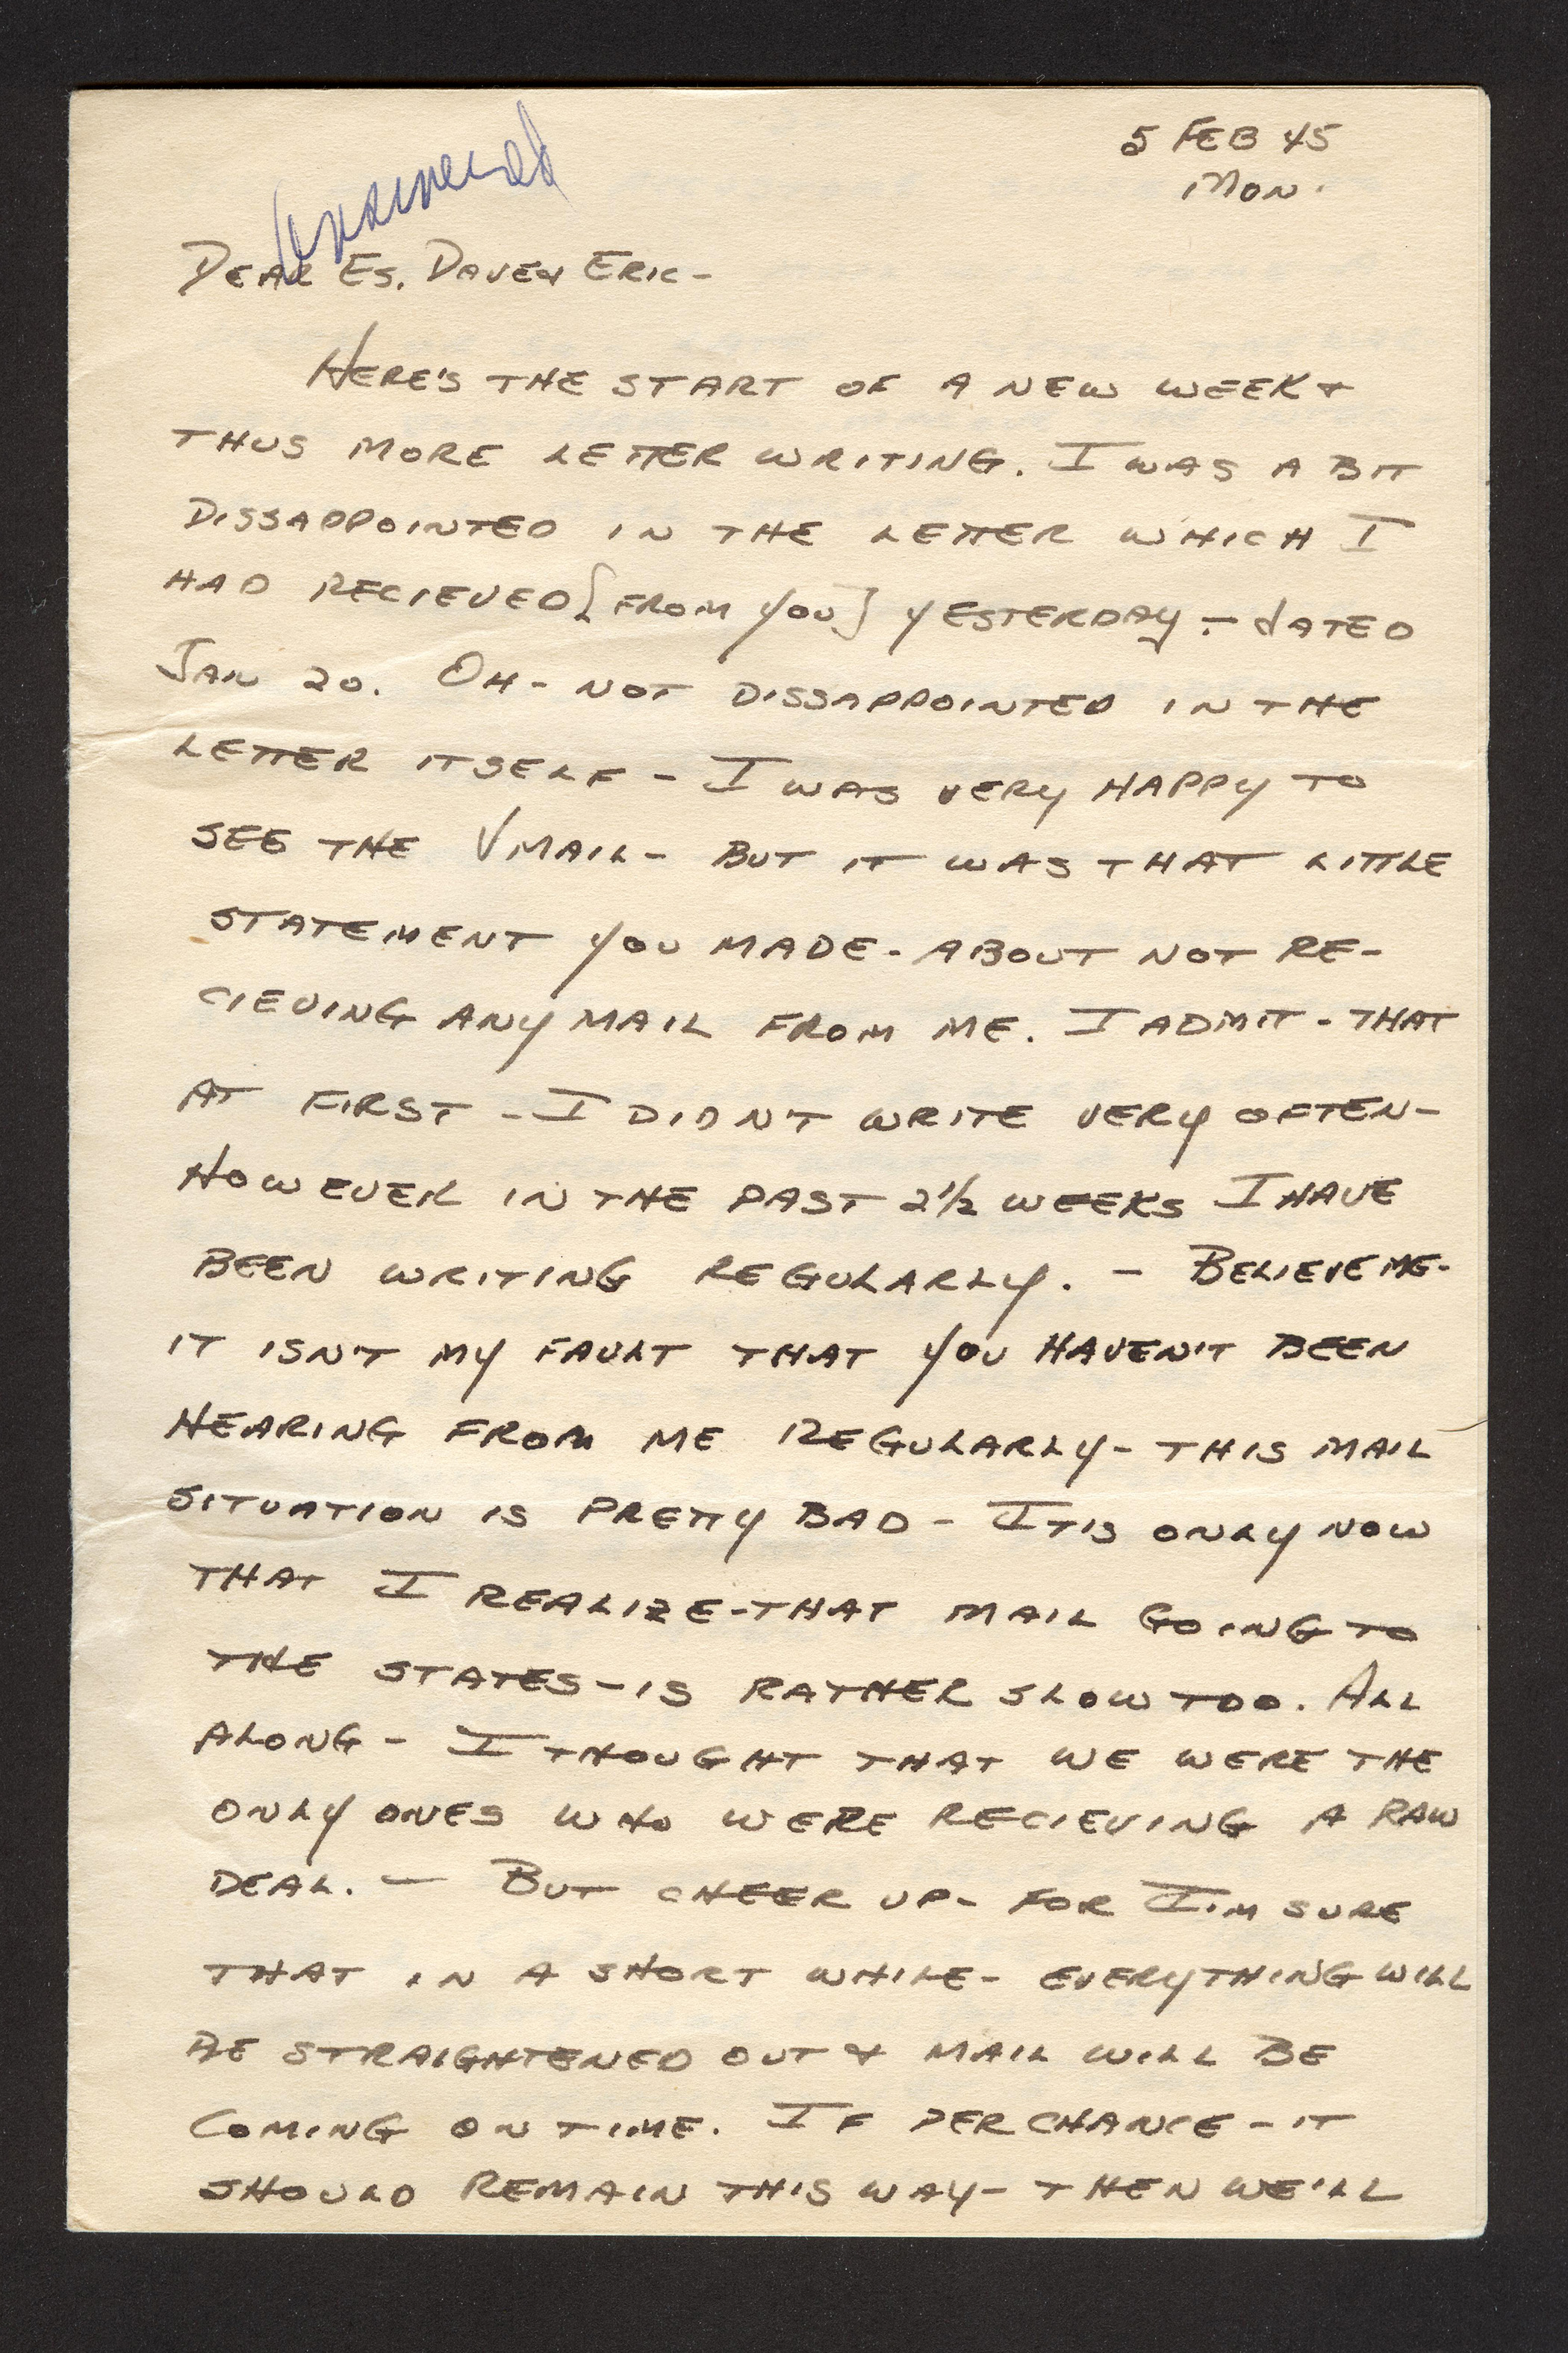 5 FEB 45
MON.
Answered
DEAR ES, DAVE & ERIC -
HERE'S THE START OF A NEW WEEK &
THUS MORE LETTER WRITING. I WAS A BIT
DISSAPPOINTED IN THE LETTER WHICH I
HAD RECIEVED [FROM YOU] YESTERDAY - DATED
JAN 20. OH - NOT DISSAPPOINTED IN THE
LETTER ITSELF - I WAS VERY HAPPY TO
SEE THE VMAIL - BUT IT WAS THAT LITTLE
STATEMENT YOU MADE - ABOUT NOT RE-
CIEVING ANY MAIL FROM ME. I ADMIT - THAT
AT FIRST - I DIDN'T WRITE VERY OFTEN -
HOWEVER IN THE PAST 2 1/2 WEEKS I HAVE
BEEN WRITING REGULARLY. - BELIEVE ME -
IT ISN'T MY FAULT THAT YOU HAVEN'T BEEN
HEARING FROM ME REGULARLY - THIS MAIL
SITUATION IS PRETTY BAD - IT IS ONLY NOW
THAT I REALIZE - THAT MAIL GOING TO
THE STATES - IS RATHER SLOW TOO. ALL
ALONG - I THOUGHT THAT WE WERE THE
ONLY ONES WHO WERE RECIEVING A RAW
DEAL. - BUT CHEER UP - FOR I'M SURE
THAT IN A SHORT WHILE - EVERYTHING WILL
BE STRAIGHTENED OUT & MAIL WILL BE
COMING ON TIME. IF PERCHANCE - IT
SHOULD REMAIN THIS WAY - THEN WE'LL